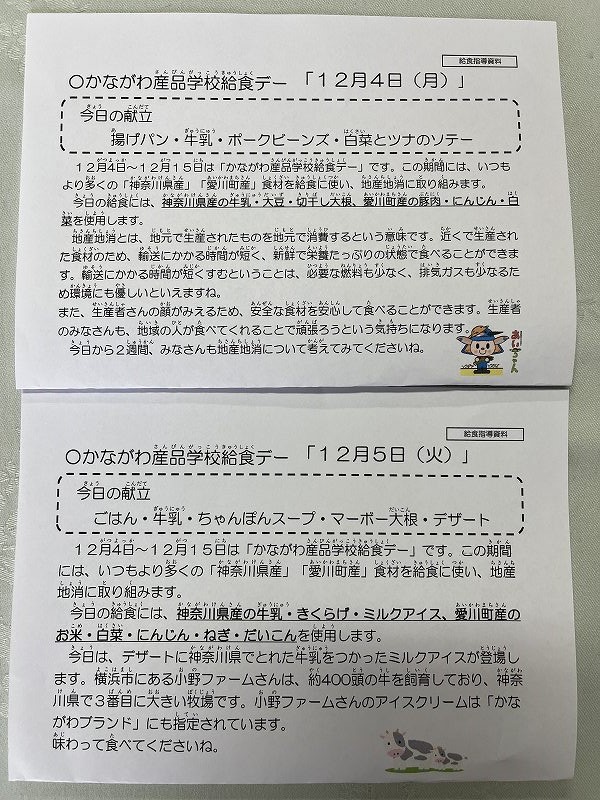 給食指導資料
〇かながわ産品学校給食デー 「12月4日（月）」
今日の献立
揚げパン・牛乳・ポークビーンズ・白菜とツナのソテー
12月4日～12月15日は「かながわ産品学校給食デー」です。この期間には、いつも
より多くの「神奈川県産」「愛川町産」食材を給食に使い、地産地消に取り組みます。
今日の給食には、神奈川県産の牛乳・大豆・切干し大根、愛川町産の豚肉・にんじん・白
菜を使用します。
地産地消とは、地元で生産されたものを地元で消費するという意味です。近くで生産され
た食材のため、輸送にかかる時間が短く、新鮮で栄養たっぷりの状態で食べることができま
す。輸送にかかる時間が短くすむということは、必要な燃料も少なく、排気ガスも少なるた
め環境にも優しいといえますね。
また、生産者さんの顔がみえるため、安全な食材を安心して食べることができます。生産者
のみなさんも、地域の人が食べてくれることで頑張ろうという気持ちになります。
今日から2週間、みなさんも地産地消について考えてみてくださいね。
あいちゃん
給食指導資料
〇かながわ産品学校給食デー 「12月5日（火）」
今日の献立
ごはん・牛乳・ちゃんぽんスープ・マーボー大根・デザート
12月4日～12月15日は「かながわ産品学校給食デー」です。この期間
には、いつもより多くの「神奈川県産」「愛川町産」食材を給食に使い、地産
地消に取り組みます。
今日の給食には、神奈川県産の牛乳・きくらげ・ミルクアイス、愛川町産の
お米・白菜・にんじん・ねぎ・だいこんを使用します。
今日は、デザートに神奈川県でとれた牛乳をつかったミルクアイスが登場し
ます。横浜市にある小野ファームさんは、約400頭の牛を飼育しており、神奈
川県で3番目に大きい牧場です。小野ファームさんのアイスクリームは「かな
がわブランド」にも指定されています。
味わって食べてくださいね。